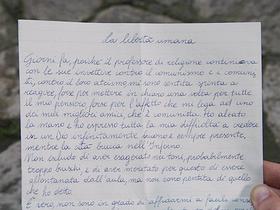 la libertà umana
Giorni fa, poiché il professore di religione continuava
con le sue invettive contro il comunismo e i comunisti,
contro il loro ateismo mi sono sentita spinta a
reagire, forse per mettere in chiaro una volta per tutte
il mio pensiero forse per l'affetto che mi lega ad uno
dei miei migliori amici, che è comunista. Ho alzato
la mano e ho espresso tutta la mia difficoltà a credere
in un Dio infinitamente buono e sempre presente,
mentre la città brucia nell'Inferno.
Non escludo di aver esagerato nei toni, probabilmente
troppo bruschi e di aver meritato per questo di essere
allontanata dall'aula, ma non sono pentita di quello
che ho detto.
È vero, non sono in grado di affidarmi a facili